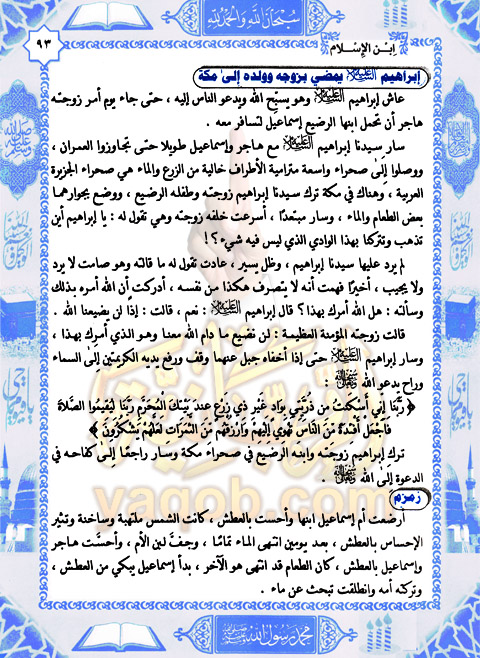 سبحان الله والحمد لله
٩٣
ابن الإسلام
إبراهيم عليه السلام يمضي بزوجه وولده إلى مكة
عاش إبراهيم عليه السلام وهو يسبّح الله ويدعو الناس إليه ، حتى جاء يوم أمر زوجته
هاجر أن تحمل ابنها الرضيع إسماعيل لتسافر معه .
سار سيدنا إبراهيم عليه السلام مع هاجر وإسماعيل طويلا حتى تجاوزوا العمران ،
ووصلوا إلى صحراء واسعة مترامية الأطراف خالية من الزرع والماء هي صحراء الجزيرة
العربية ، وهناك في مكة ترك سيدنا إبراهيم زوجته وطفله الرضيع ، ووضع بجوارهما
بعض الطعام والماء ، وسار مبتعدًا ، أسرعت خلفه زوجته وهي تقول له : يا إبراهيم أين
تذهب وتتركنا بهذا الوادي الذي ليس فيه شيء ؟ !
لم يرد عليها سيدنا إبراهيم ، وظل يسير ، عادت تقول له ما قالته وهو صامت لا يرد
ولا يجيب ، أخيرًا فهمت أنه لا يتصرف هكذا من نفسه ، أدركت أن الله أمره بذلك
وسألته : هل الله أمرك بهذا ؟ قال إبراهيم عليه السلام : نعم ، قالت : إذًا لن يضيعنا الله .
قالت زوجته المؤمنة العظيمة : لن نضيع ما دام الله معنا وهو الذي أمرك بهذا ،
وسار إبراهيم عليه السلام حتى إذا أخفاه جبل عنهما وقف ورفع يديه الكريمتين إلى السماء
وراح يدعو الله :
﴿ رَّبَّنَا إِنِّي أَسْكَنتُ مِن ذُرِّيَّتِي بِوَادٍ غَيْرِ ذِي زَرْعٍ عِندَ بَيْتِكَ الْمُحَرَّمِ رَبَّنَا لِيُقِيمُوا الصَّلاةَ
فَاجْعَلْ أَفْئِدَةً مِّنَ النَّاسِ تَهْوِي إِلَيْهِمْ وَارْزُقْهُم مِّنَ الثَّمَرَاتِ لَعَلَّهُمْ يَشْكُرُونَ ﴾
ترك إبراهيم زوجته وابنه الرضيع في صحراء مكة وسار راجعًا إلى كفاحه في
الدعوة إلى الله .
زمزم
أرضعت أم إسماعيل ابنها وأحست بالعطش ، كانت الشمس ملتهبة وساخنة وتثير
الإحساس بالعطش ، بعد يومين انتهى الماء تمامًا ، وجفت لبن الأم ، وأحسّت هاجر
وإسماعيل بالعطش ، كان الطعام قد انتهى هو الآخر ، بدأ إسماعيل يبكي من العطش ،
وتركته أمه وانطلقت تبحث عن ماء .
yaqob.com
محمد رسول الله